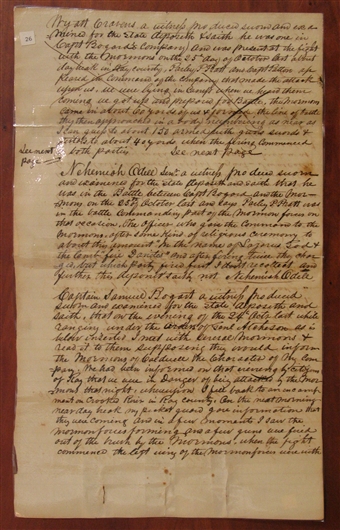 26
Wyatt Cravens a witness produced sworn and exa-
mined for the State deposeth & saith he was one in
Capt Bogards Company and was present at the fight
with the Mormons on the 25th day of October last about
day break in this county, Parley P Pratt and Capt Patton ap
peared in command of the company that made the attack
upon us. we were lying in Camp when we heard them
coming we got up and prepared for Battle, the mormons
came in about 60 yards of us & formed the line of Battle
they then approached in as near as
I can guess about 150 armed with guns swords &
pistols to about 40 yards when the firing commenced
by both parties See next page
See next
page
Nehemiah Odell a witness produced sworn
and examined for the State deposeth and saith that he
was in the Battle between Capt Bogard and the Mor-
mons on the 25th October last and says Parley P Pratt was
in the battle Commanding part of the Mormon forces on
that occasion. The officer who gave the Command to the
Mormons after a kind of religious ceremony to
about this amount In the name of Lazarus God &
the Lamb fire Danites and after firing twice they char
ged, but which party fired first I don't recollect and
further this deponent saith not Nehemiah Odell
Captain Samuel Bogart a witness produced
sworn and examined for the State deposeth and
saith, that on the evening of the 24th Oct last while
ranging under the orders of Genl Atchison as is
below inserted I met with several mormons &
read it to them supposing they would inform
the Mormons of Caldwell the Character of my Com
pany. We had been informed on that evening by citizens
of Ray that we were in danger of being attacked by the Mor
mons that night whereupon I fell back to an encamp
ment on Crooked River in Ray county. On the next morning
near day break my picket guard gave information that
they were coming and in a few moments I saw the
mormon forces forming and a few guns were fired
out of the brush by the Mormons, when the fight
commenced the left wing of the mormon force was with